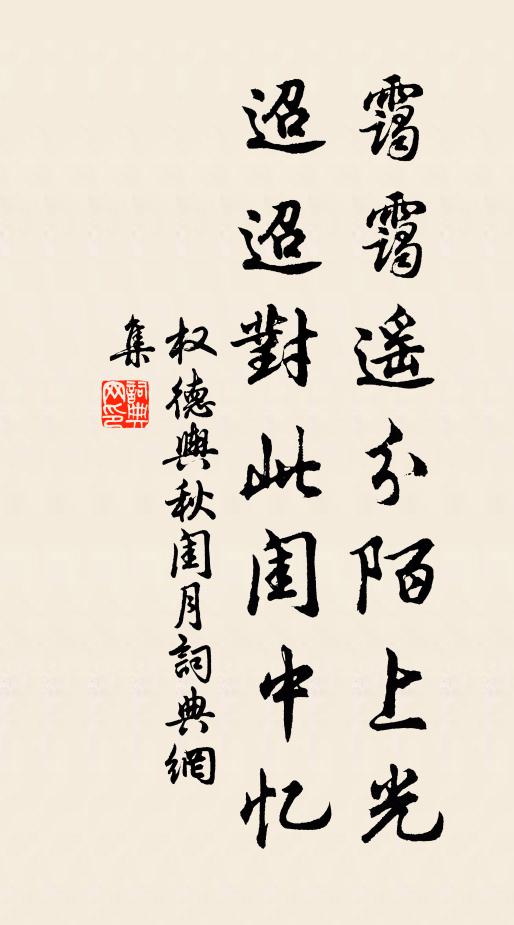 靄靄遥分陌上光
迢迢對此閨中忆
权德輿秋閨月詞典網
集
詞典
网印